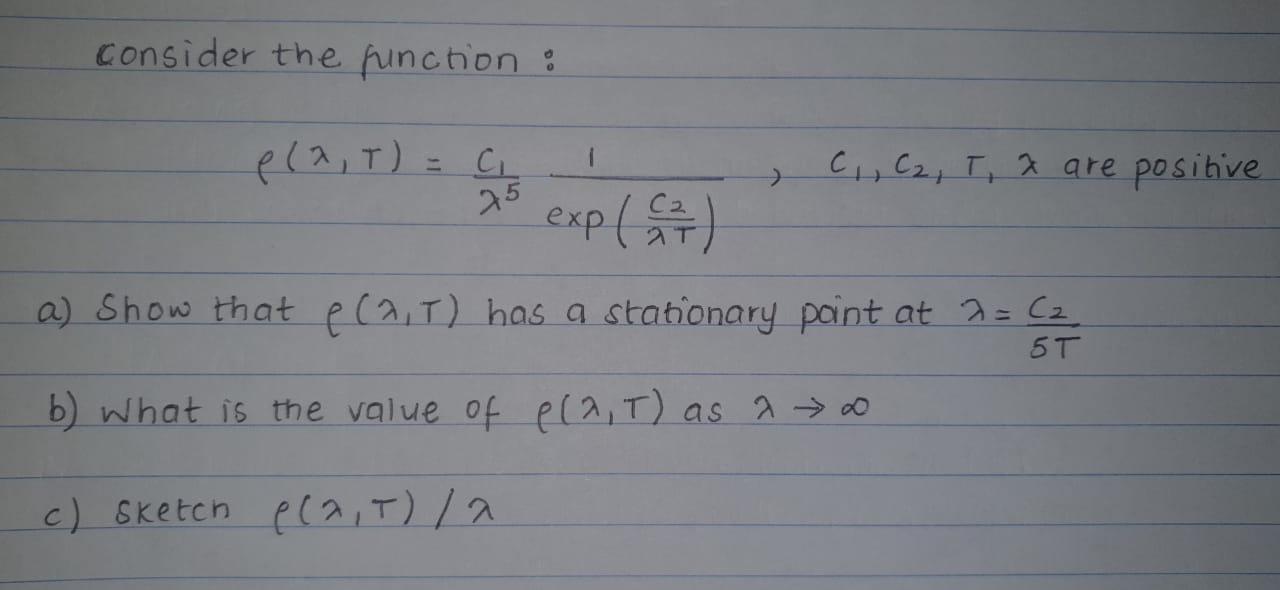 Consider the function :
ρ(λ, T) = C₁/λ⁵ 1/exp(C₂/λT) , C₁, C₂, T, λ are positive
a) Show that ρ(λ,T) has a stationary point at λ = C₂/5T
b) What is the value of ρ(λ,T) as λ → ∞
c) Sketch ρ(λ,T) / λ